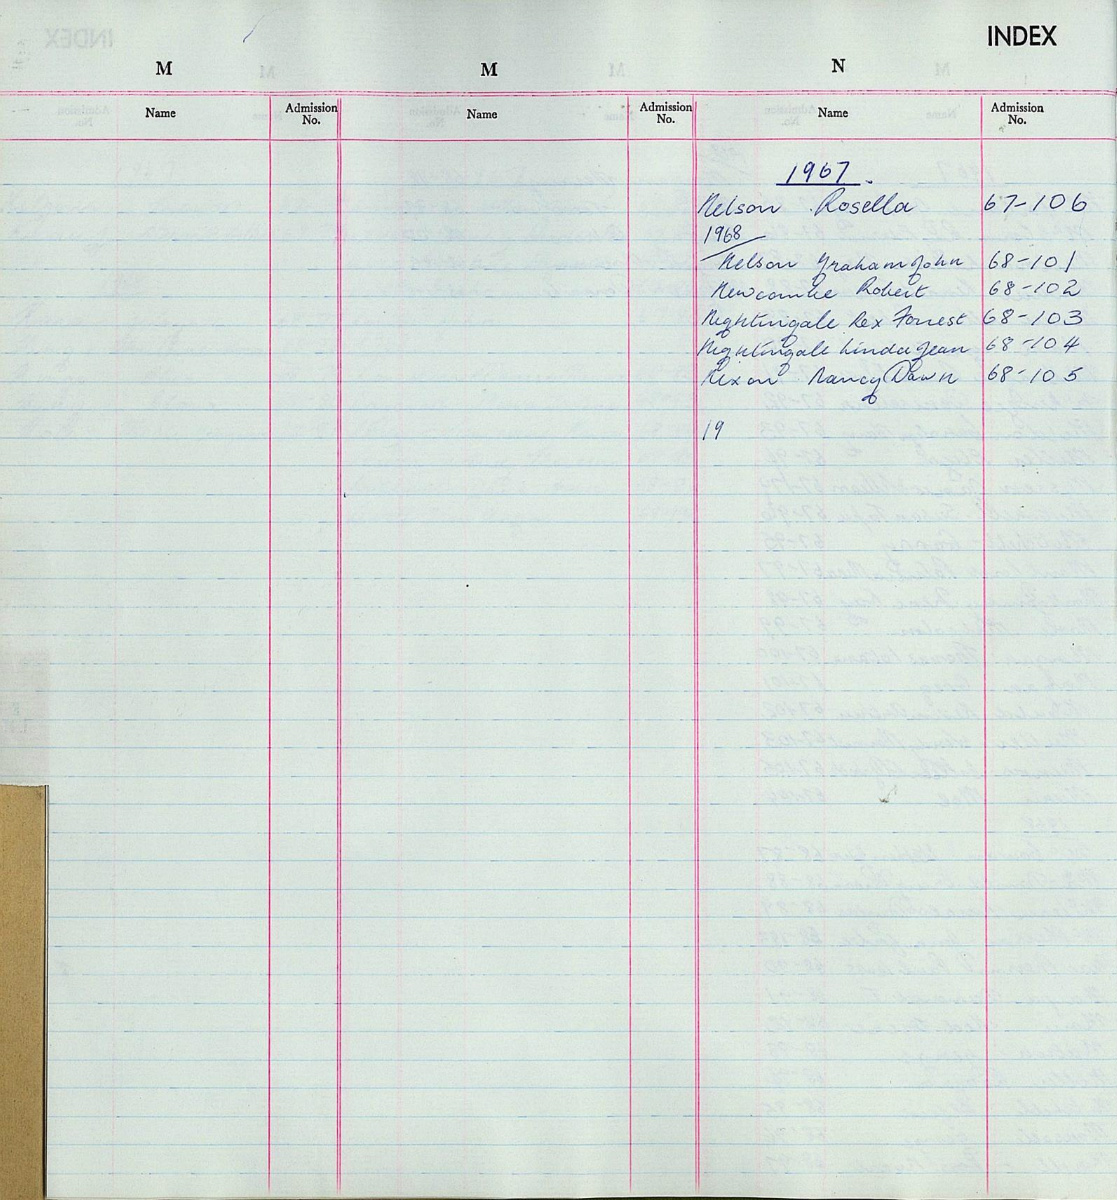 INDEX
M M N
Name Admission No. Name Admission No. Name Admission No.
1967
Nelson Rosella 67-106
1968
Nelson Graham John 68-101
Newcombe Robert 68-102
Nightingale Rex Forrest 68-103
Nightingale Linda Jean 68-104
Nixon Nancy Dawn 68-105
19